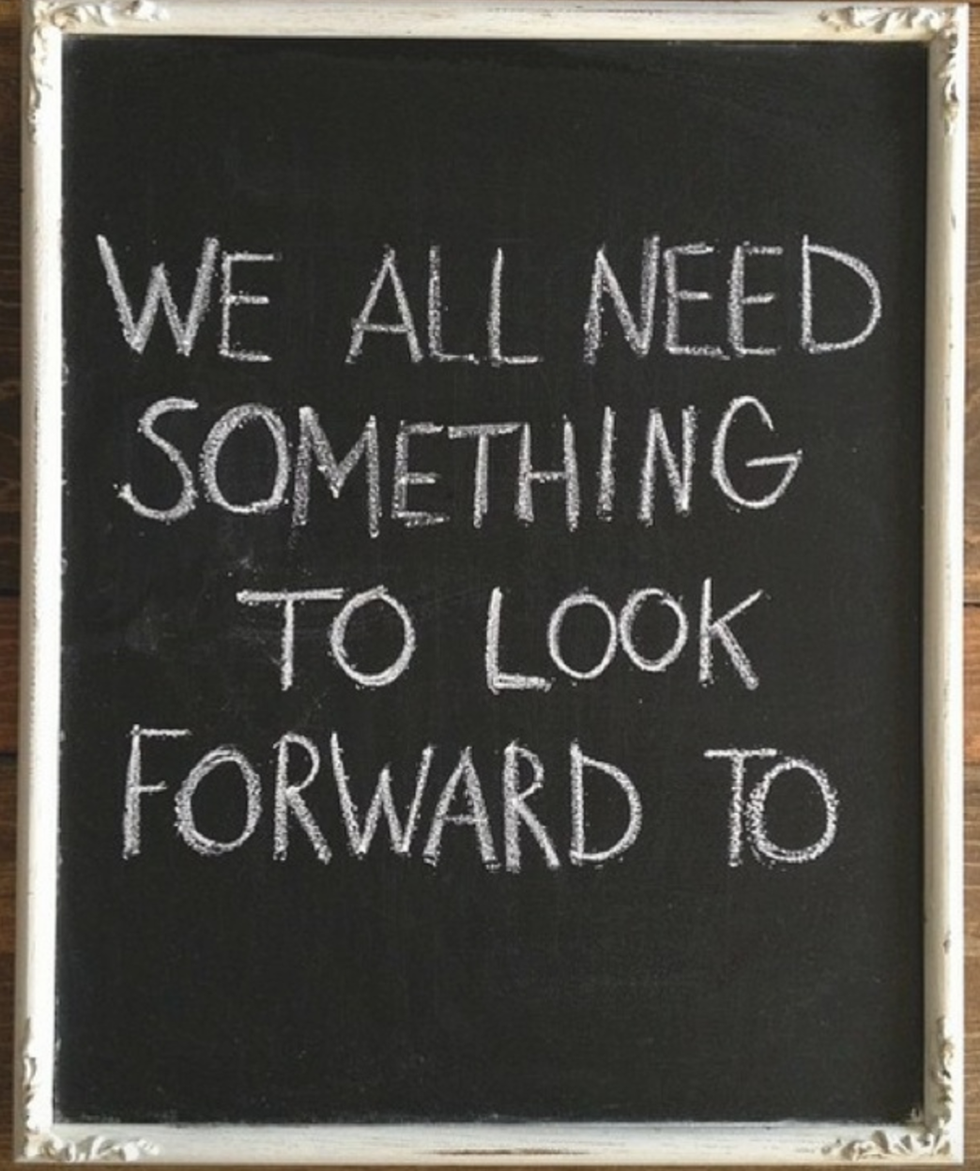 WE ALL NEED
SOMETHING
TO LOOK
FORWARD TO